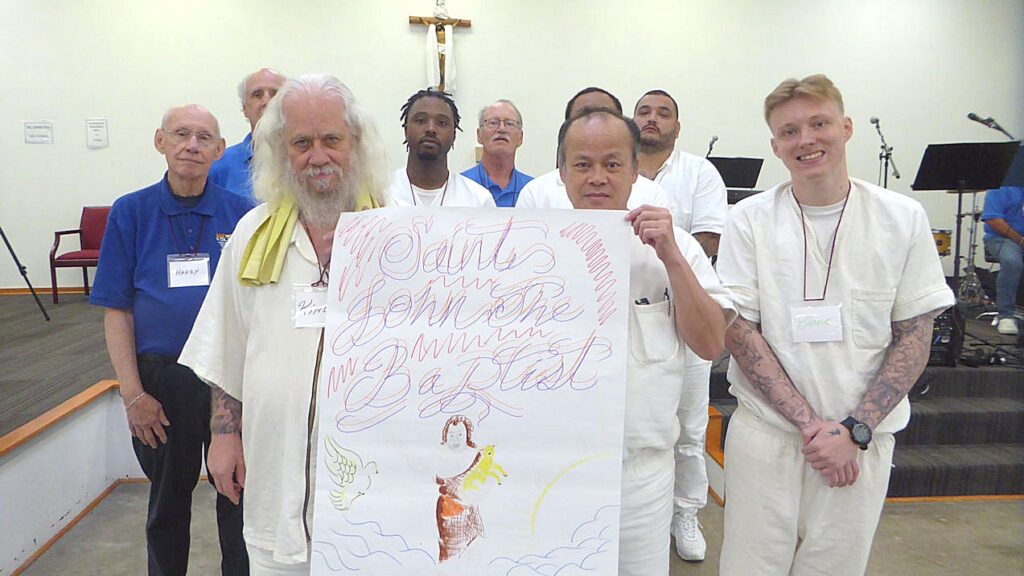 Saints
John The
Baptist
HARRY